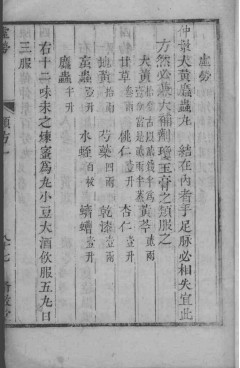 虛勞
仲景大黃䗪蟲丸　結在內者手足脉必相失宜此
方然必兼大補劑瓊玉膏之類服之
大黃　黃芩貳兩
甘草叁兩　桃仁壹升　杏仁壹升
地黃拾兩　芍藥四兩　乾漆壹兩
蝱蟲壹升　水蛭百枚　蠐螬壹升
䗪蟲半升
右十二味末之煉蜜為丸小豆大酒飲服五丸日
三服
虛勞　類方